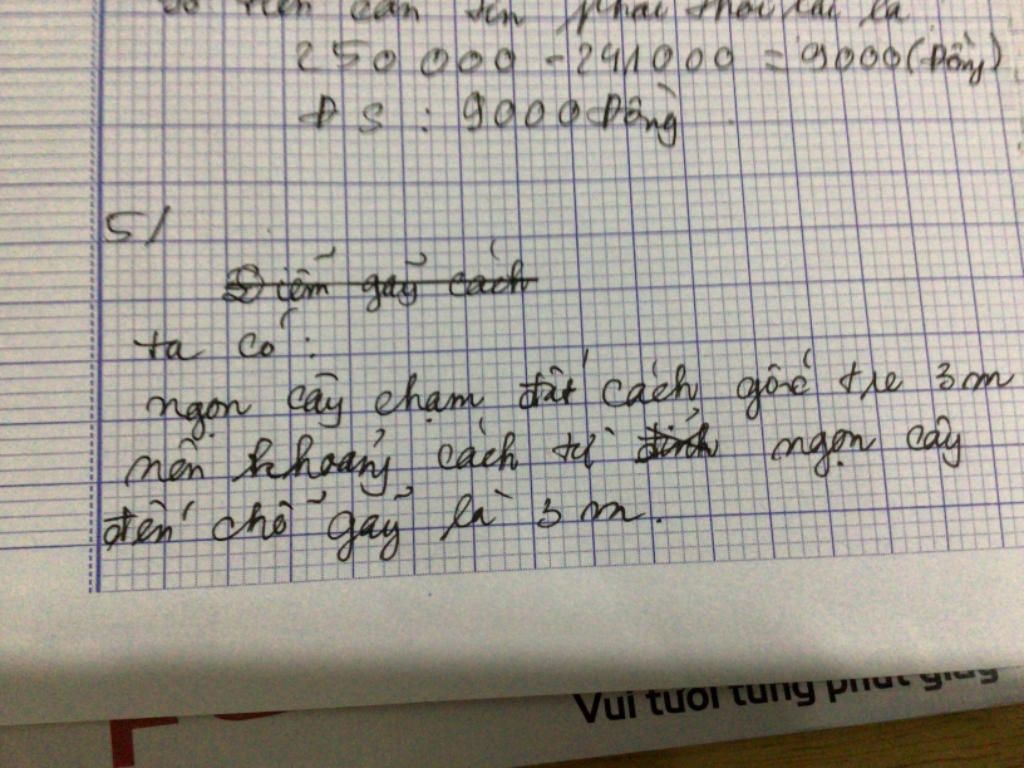 số tiền căn tin phải thối lại là
250 000 - 241000 = 9000 (Đồng)
ĐS : 9000 Đồng
5/
Điểm gãy cách
ta có :
ngọn cây chạm đất cách gốc tre 3m
nên khoảng cách từ đỉnh ngọn cây
đến chỗ gãy là 3m.
Vui tươi từng phút giây